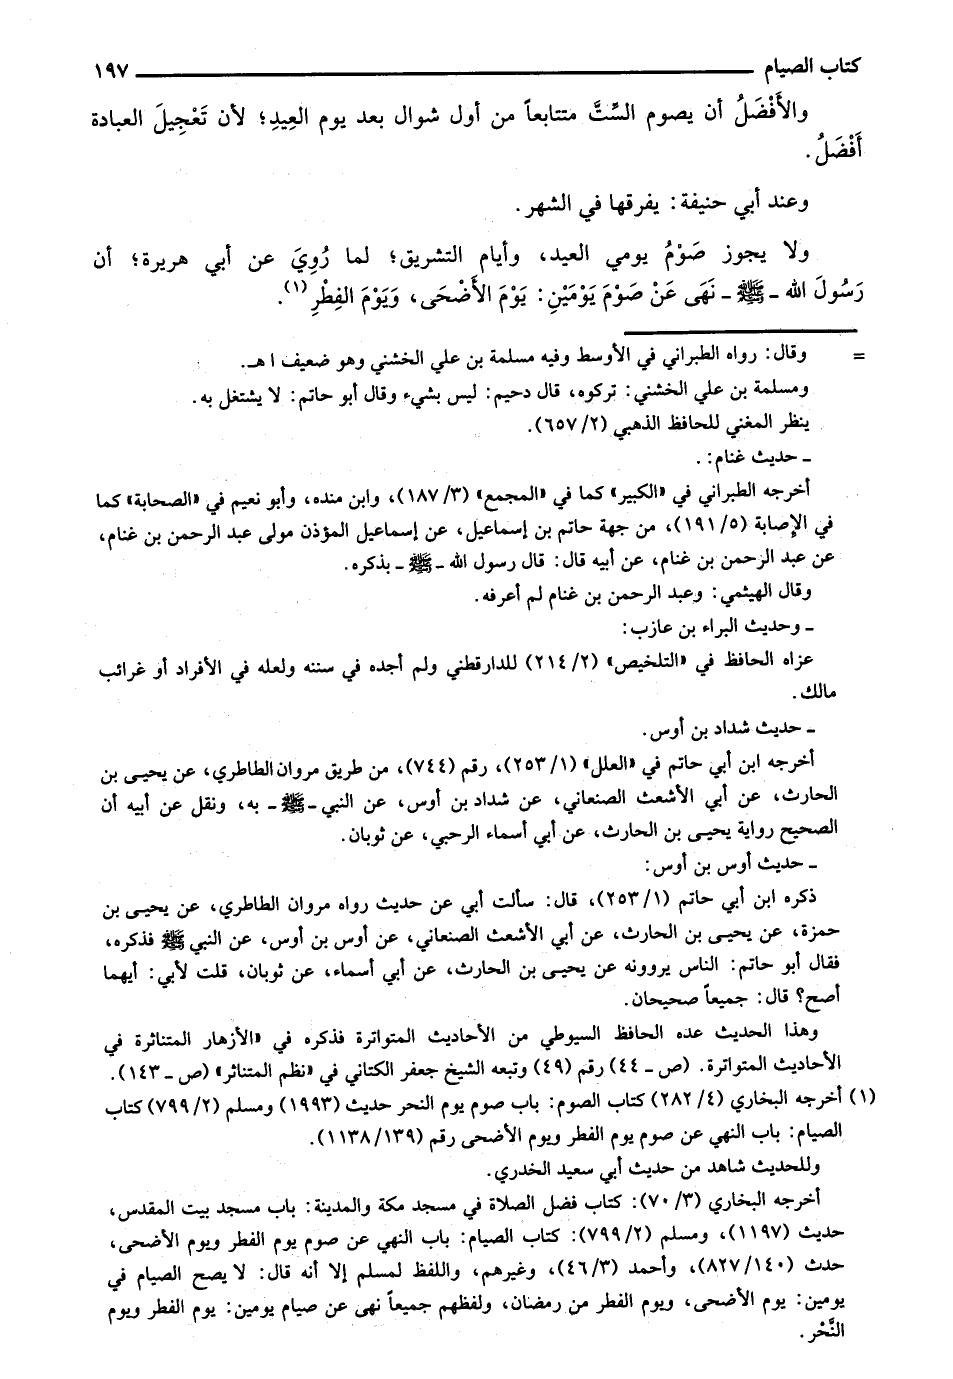 كتاب الصيام ١٩٧
والأَفْضَلُ أن يصوم السِّتَّ متتابعاً من أول شوال بعد يوم العِيدِ؛ لأن تَعْجِيلَ العبادة
أَفْضَلُ.
وعند أبي حنيفة: يفرقها في الشهر.
ولا يجوز صَوْمُ يومي العيد، وأيام التشريق؛ لما رُوِيَ عن أبي هريرة؛ أن
رَسُولَ الله ـ ﷺ ـ نَهَى عَنْ صَوْمَ يَوْمَيْنِ: يَوْمَ الأَضْحَى، وَيَوْمَ الفِطْرِ(١).
= وقال: رواه الطبراني في الأوسط وفيه مسلمة بن علي الخشني وهو ضعيف اهـ.
ومسلمة بن علي الخشني: تركوه، قال دحيم: ليس بشيء وقال أبو حاتم: لا يشتغل به.
ينظر المغني للحافظ الذهبي (٢/ ٦٥٧).
ـ حديث غنام: .
أخرجه الطبراني في «الكبير» كما في «المجمع» (٣/ ١٨٧)، وابن منده، وأبو نعيم في «الصحابة» كما
في الإصابة (٥/ ١٩١)، من جهة حاتم بن إسماعيل، عن إسماعيل المؤذن مولى عبد الرحمن بن غنام،
عن عبد الرحمن بن غنام، عن أبيه قال: قال رسول الله ـ ﷺ ـ بذكره.
وقال الهيثمي: وعبد الرحمن بن غنام لم أعرفه.
ـ وحديث البراء بن عازب:
عزاه الحافظ في «التلخيص» (٢/ ٢١٤) للدارقطني ولم أجده في سننه ولعله في الأفراد أو غرائب
مالك.
ـ حديث شداد بن أوس.
أخرجه ابن أبي حاتم في «العلل» (١/ ٢٥٣)، رقم (٧٤٤)، من طريق مروان الطاطري، عن يحيى بن
الحارث، عن أبي الأشعث الصنعاني، عن شداد بن أوس، عن النبي ـ ﷺ ـ به، ونقل عن أبيه أن
الصحيح رواية يحيى بن الحارث، عن أبي أسماء الرحبي، عن ثوبان.
ـ حديث أوس بن أوس:
ذكره ابن أبي حاتم (١/ ٢٥٣)، قال: سألت أبي عن حديث رواه مروان الطاطري، عن يحيى بن
حمزة، عن يحيى بن الحارث، عن أبي الأشعث الصنعاني، عن أوس بن أوس، عن النبي ﷺ فذكره،
فقال أبو حاتم: الناس يروونه عن يحيى بن الحارث، عن أبي أسماء، عن ثوبان، قلت لأبي: أيهما
أصح؟ قال: جميعاً صحيحان.
وهذا الحديث عده الحافظ السيوطي من الأحاديث المتواترة فذكره في «الأزهار المتناثرة في
الأحاديث المتواترة. (ص ـ ٤٤) رقم (٤٩) وتبعه الشيخ جعفر الكتاني في «نظم المتناثر» (ص ـ ١٤٣).
(١) أخرجه البخاري (٤/ ٢٨٢) كتاب الصوم: باب صوم يوم النحر حديث (١٩٩٣) ومسلم (٢/ ٧٩٩) كتاب
الصيام: باب النهي عن صوم يوم الفطر ويوم الأضحى رقم (١٣٩/ ١١٣٨).
وللحديث شاهد من حديث أبي سعيد الخدري.
أخرجه البخاري (٣/ ٧٠): كتاب فضل الصلاة في مسجد مكة والمدينة: باب مسجد بيت المقدس،
حديث (١١٩٧)، ومسلم (٢/ ٧٩٩): كتاب الصيام: باب النهي عن صوم يوم الفطر ويوم الأضحى،
حدث (١٤٠/ ٨٢٧)، وأحمد (٣/ ٤٦)، وغيرهم، واللفظ لمسلم إلا أنه قال: لا يصح الصيام في
يومين: يوم الأضحى، ويوم الفطر من رمضان، ولفظهم جميعاً نهى عن صيام يومين: يوم الفطر ويوم
النَّحْر.